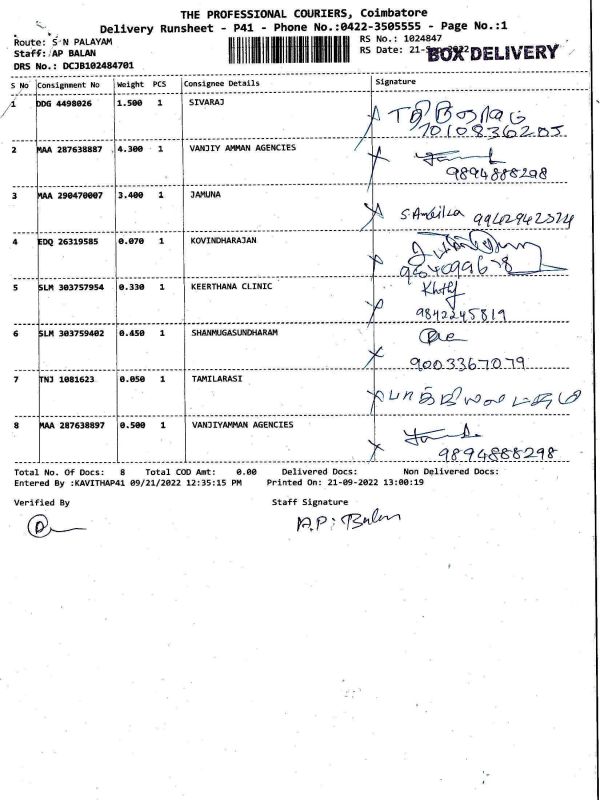 THE PROFESSIONAL COURIERS, Coimbatore
Delivery Runsheet - P41 - Phone No.:0422-3505555 - Page No.:1
Route: S N PALAYAM
RS No.: 1024847
Staff: AP BALAN
RS Date: 21-Sep-2022
BOX DELIVERY
DRS No.: DCJB102484701
S No Consignment No Weight PCS Consignee Details Signature
1 DDG 4498026 1.500 1 SIVARAJ
2 MAA 287638887 4.300 1 VANJIY AMMAN AGENCIES
9894888298
3 MAA 290470007 3.400 1 JAMUNA S.Ambika
4 EDQ 26319585 0.070 1 KOVINDHARAJAN
5 SLM 303757954 0.330 1 KEERTHANA CLINIC
9842245819
6 SLM 303759402 0.450 1 SHANMUGASUNDHARAM
9003367079
7 TNJ 1081623 0.050 1 TAMILARASI
8 MAA 287638897 0.500 1 VANJIYAMMAN AGENCIES
9894888298
Total No. Of Docs: 8 Total COD Amt: 0.00 Delivered Docs: Non Delivered Docs:
Entered By :KAVITHAP41 09/21/2022 12:35:15 PM Printed On: 21-09-2022 13:00:19
Verified By Staff Signature
A.P. Balan